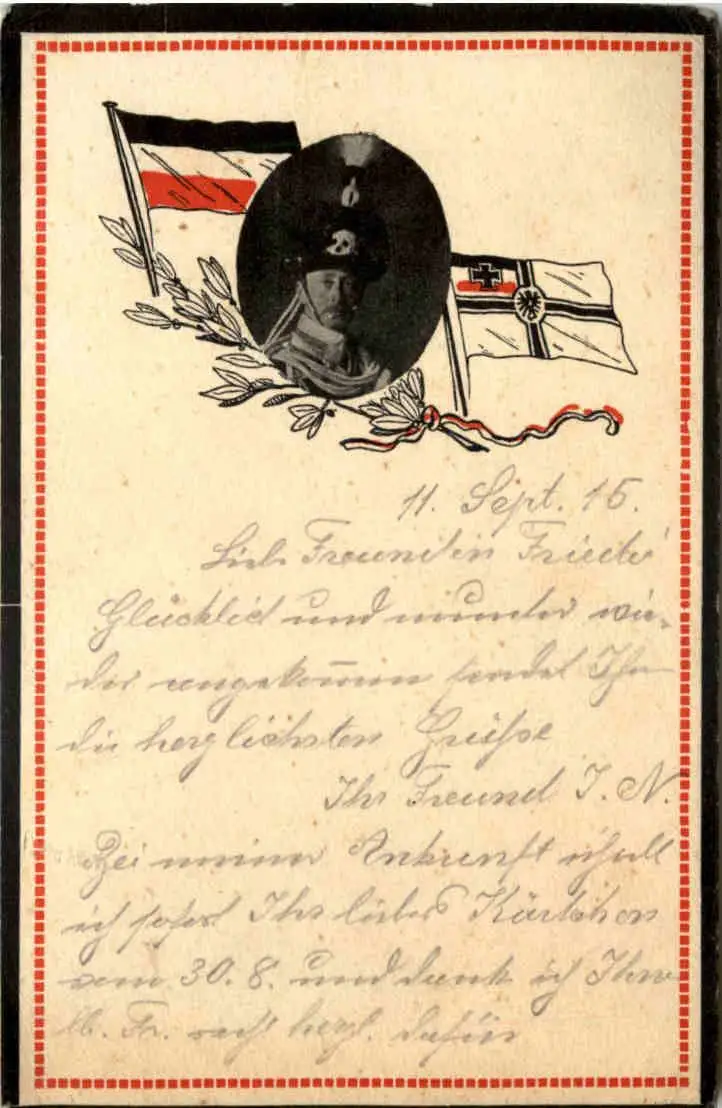 11. Sept. 15.
Lieb. Freundin Friedl
Glücklich und munter wie-
der angekommen sendet Ihn
die herzlichsten Grüße
Ihr Freund J. N.
Bei meiner Ankunft erhielt
ich sofort Ihr liebes Kärtchen
vom 30. 8. und danke ich Ihnen
lb. Fr. recht herzl. dafür